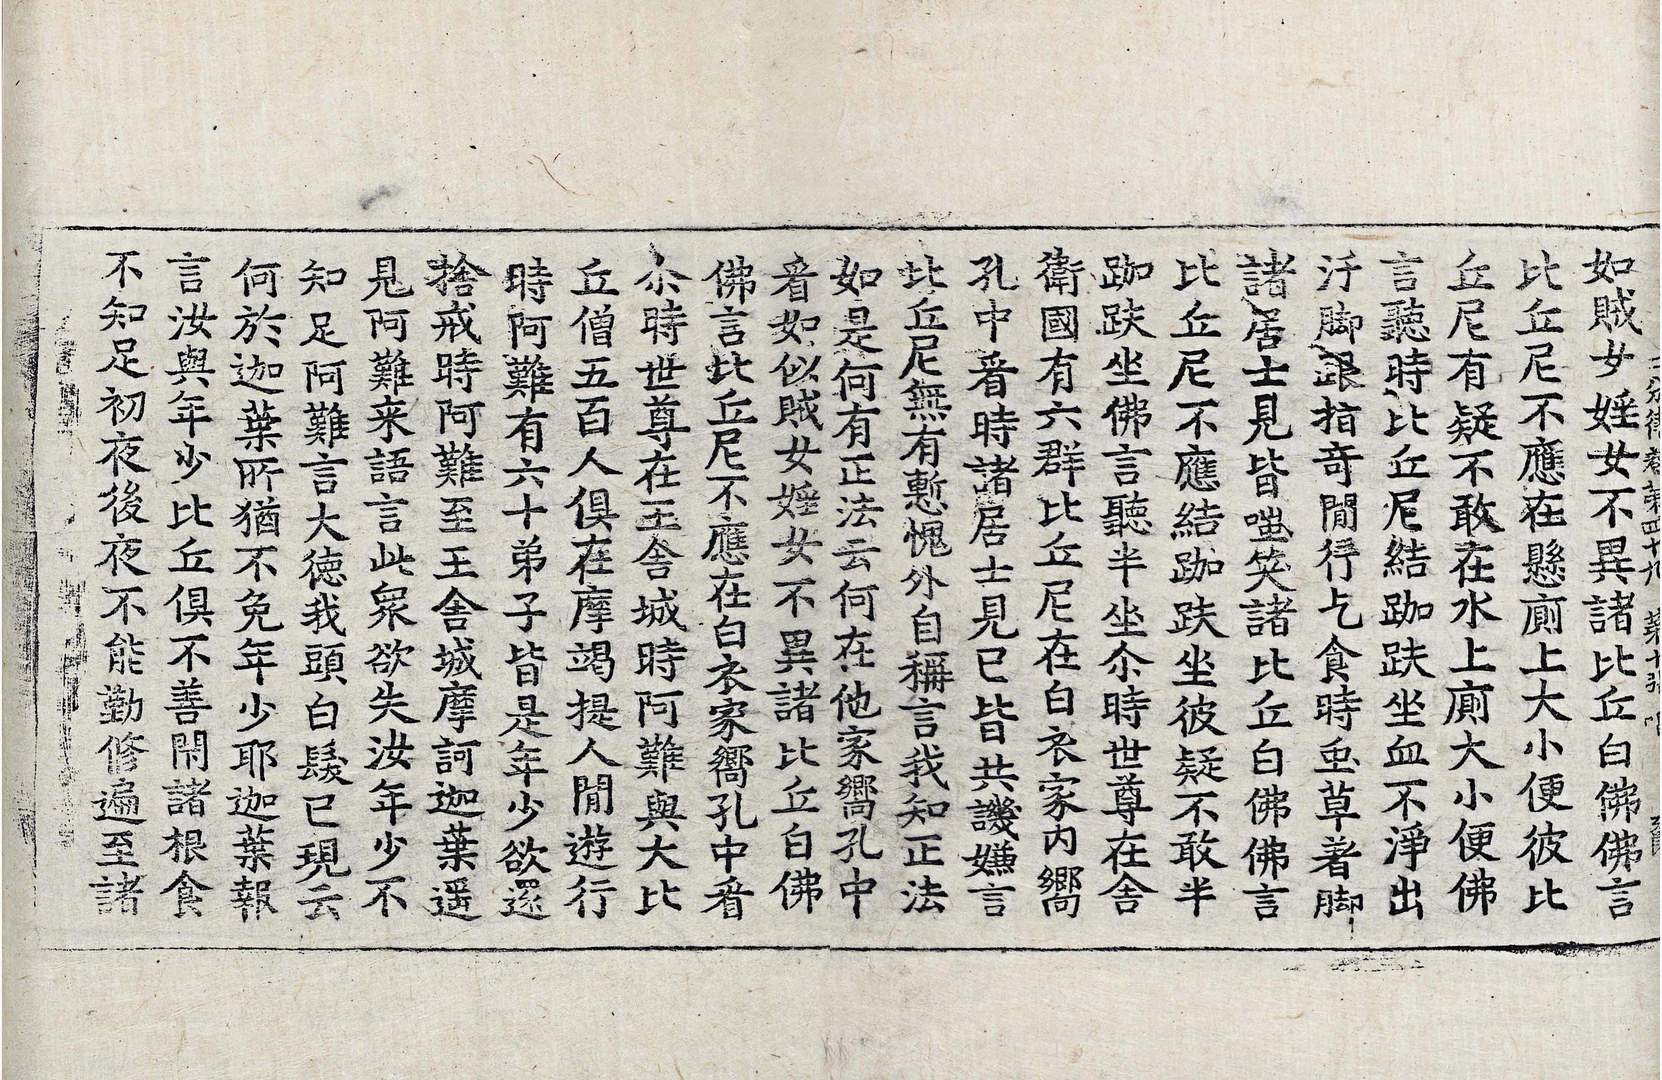 四分律卷第四十九 第十張
如賊女婬女不異諸比丘白佛佛言
比丘尼不應在懸廁上大小便彼比
丘尼有疑不敢在水上廁大小便佛
言聽時比丘尼結跏趺坐血不淨出
汙脚跟指奇閒行乞食時虫草著脚
諸居士見皆嗤笑諸比丘白佛佛言
比丘尼不應結跏趺坐彼疑不敢半
跏趺坐佛言聽半坐尒時世尊在舍
衛國有六群比丘尼在白衣家内嚮
孔中看時諸居士見已皆共譏嫌言
此丘尼無有慙愧外自稱言我知正法
如是何有正法云何在他家嚮孔中
看如似賊女婬女不異諸比丘白佛
佛言比丘尼不應在白衣家嚮孔中看
尒時世尊在王舍城時阿難與大比
丘僧五百人俱在摩竭提人閒遊行
時阿難有六十弟子皆是年少欲還
捨戒時阿難至王舍城摩訶迦葉遥
見阿難来語言此衆欲失汝年少不
知足阿難言大徳我頭白髮已現云
何於迦葉所猶不免年少耶迦葉報
言汝與年少比丘俱不善閇諸根食
不知足初夜後夜不能勤修遍至諸